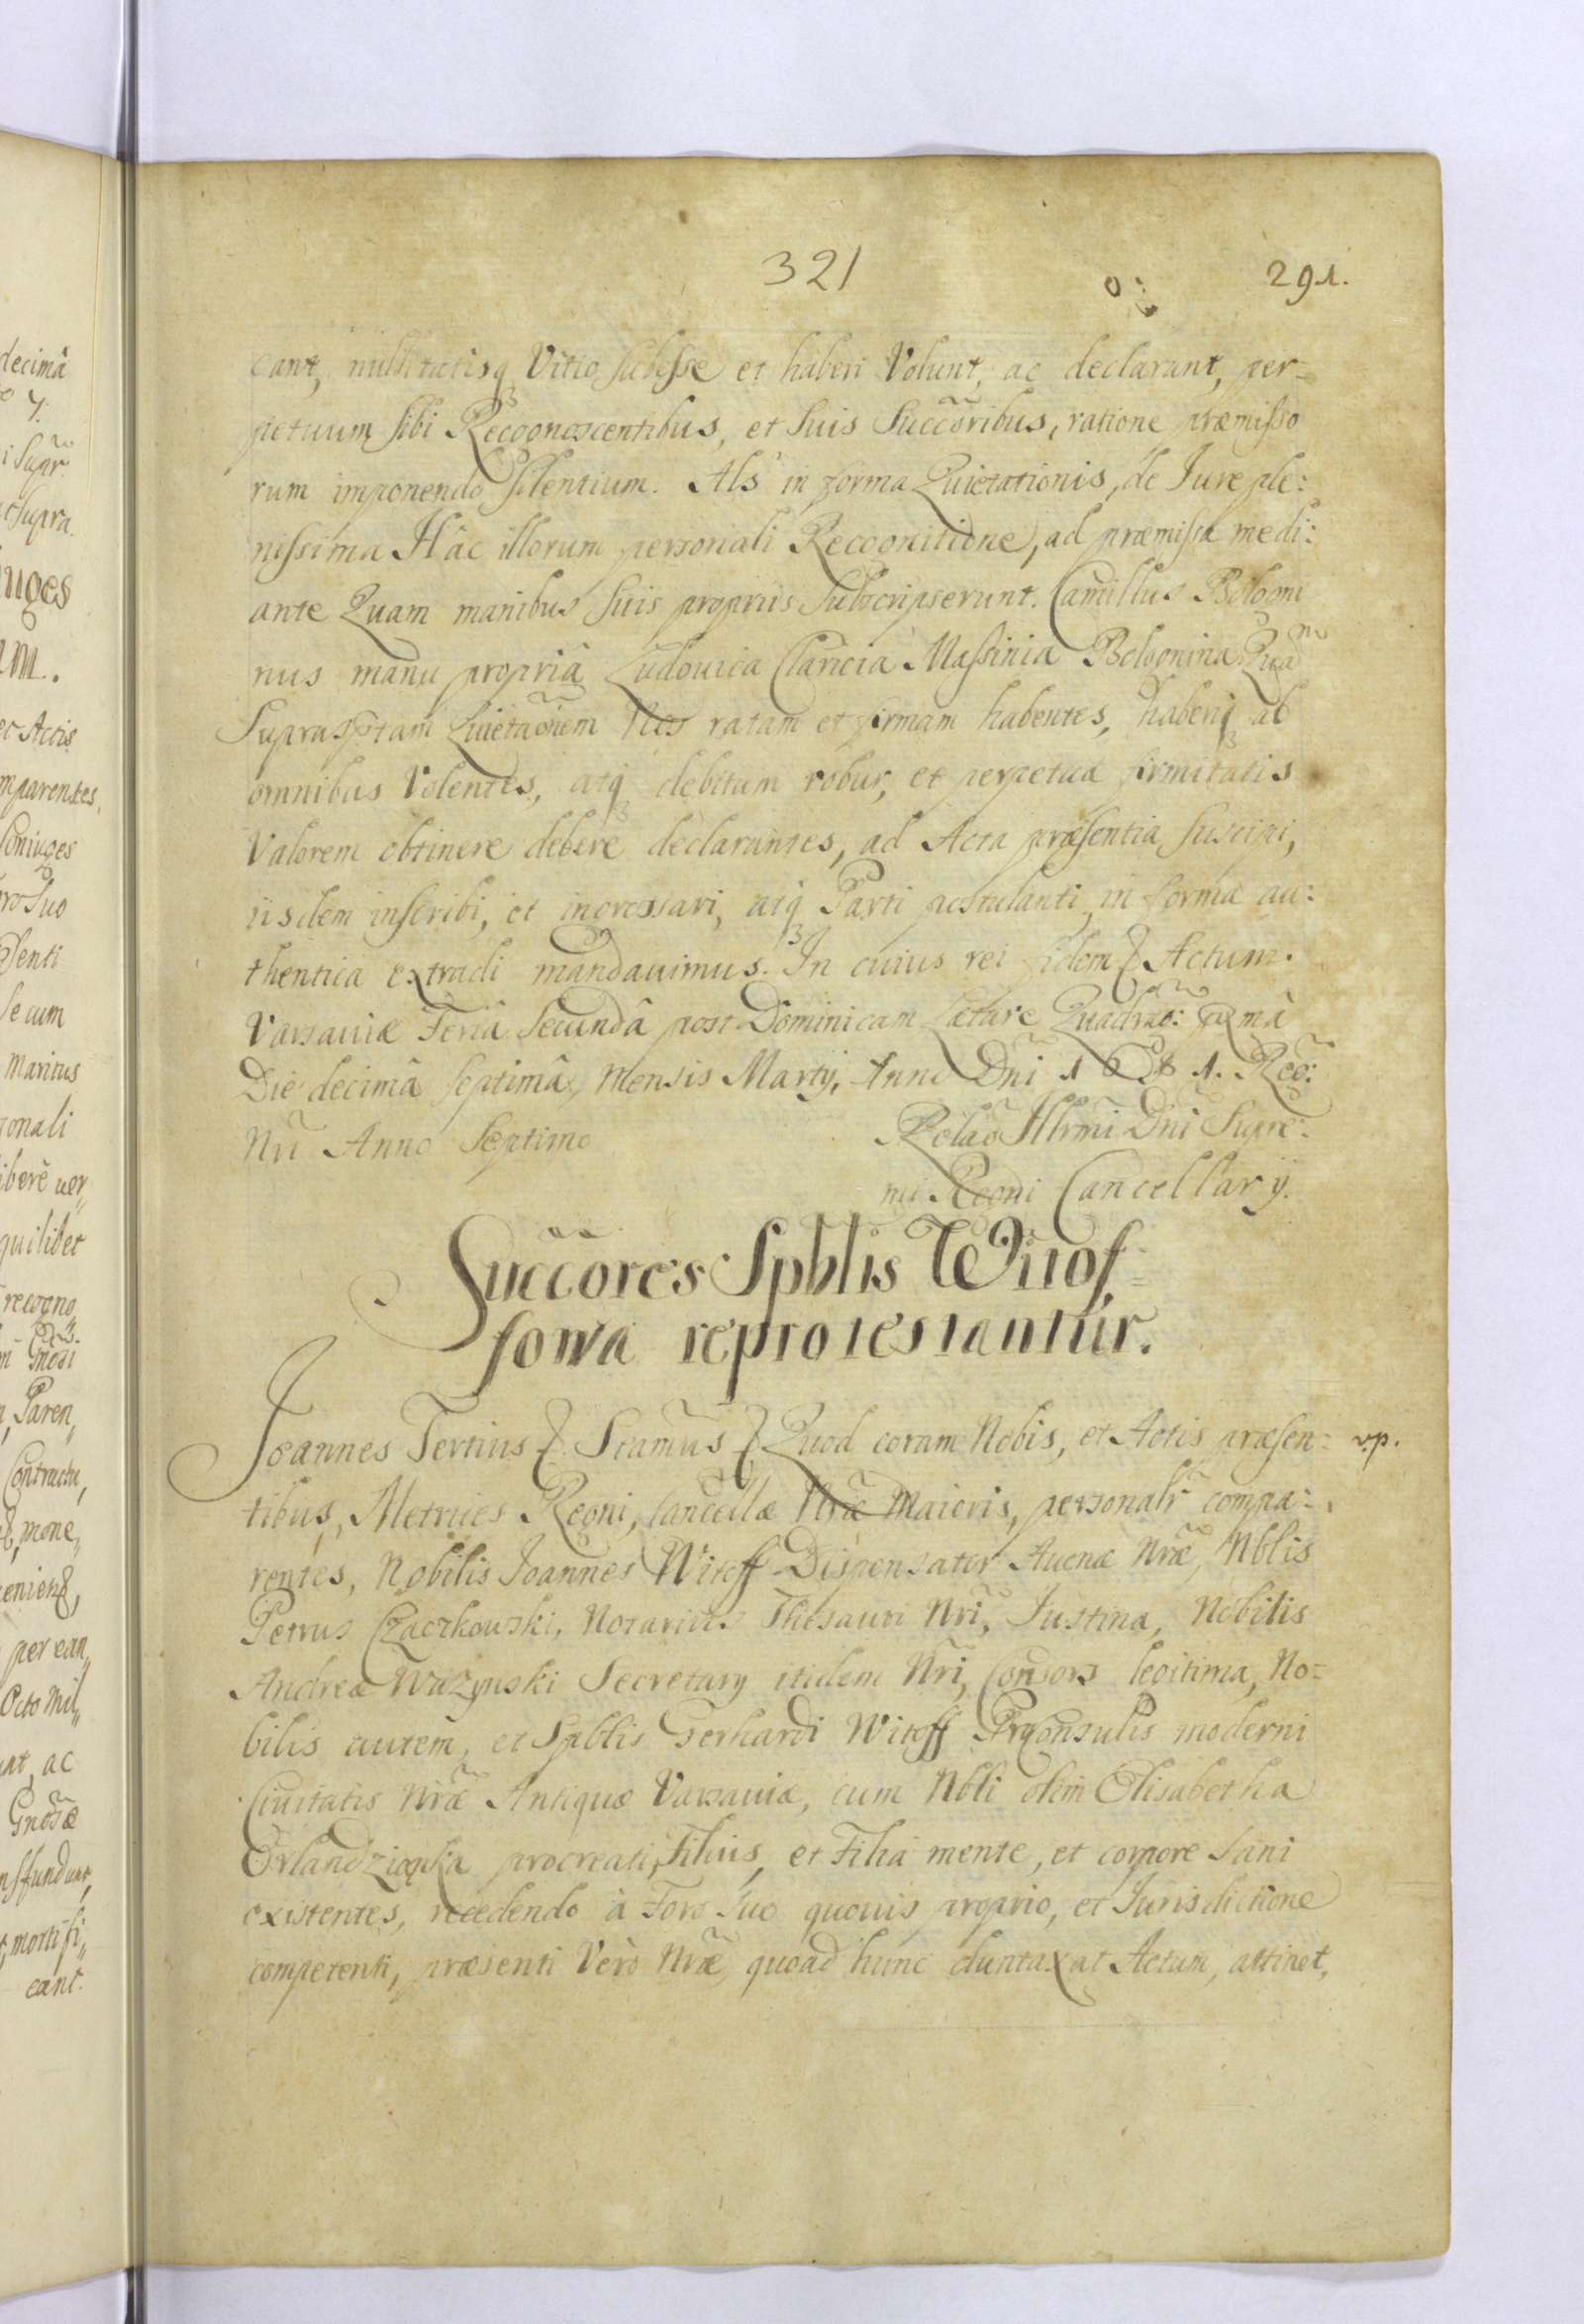 321
291.
cant, nullitatisq Vitio subesse et haberi Volunt, ac declarant, per-
petuum sibi Recognoscentibus, et Suis Succoribus, ratione præmisso
rum imponendo silentium. Als in forma Quietationis, de Jure ple:
nissima Hâc illorum personali Recognitione, ad præmissa medi:
ante Quam manibus Suis proprijs Subscripserunt. Camillus Bologni
nus manu propriâ Ludouica Claricia Massinia Bolognina Quam
Suprasptam Quietaõnem Nos ratam et firmam habentes, haberiq ab
omnibus Volentes, atq debitum robur, et perpetuæ firmitatis
Valorem obtinere debere declarantes, ad Acta præsentia Suscipi,
iisdem inscribi, et ingrossari, atq Parti postulanti in forma au:
thentica extradi mandauimus. In cuius rei fidem Actum.
Varsauiæ Feriâ Secundâ post Dominicam Lætare Quadrao:
Die decimâ Septimâ, Mensis Martij, Anno Dñi 1681. Reg:
Nri Anno Septimo
Relaõ Illrmi Dñi Supre:
mi Regni Cancellarÿ.
Succores Spblis Wittof=
fowa reprotestantur.
Joannes Tertius Scamus Quod coram Nobis, et Actis præsen=
v.p.
tibus, Metrices Regni, Cancellæ Nræ Maioris, personalr compa:
rentes, Nobilis Joannes Witoff Dispensator Auenæ Nræ, Nblis
Petrus Czaczkowski, Notarius Thesauri Nri, Justina, Nobilis
Andreæ Wuzynski Secretarÿ itidem Nri, Consors legitima, No=
bilis autem, et Spblis Gerhardi Witoff Proconsulis moderni
Ciuitatis Nræ Antiquæ Varsauiæ, cum Nbli olim Elisabetha
Orlandzionka procreati, Filius, et Filia mente, et corpore Sani
existentes, recedendo à Foro Suo quouis proprio, et Jurisdictione
competenti, præsenti Verò Nræ, quoad hunc duntaxat Actum, attinet,
decimâ
i Supr
t Supra.
uges
m.
Actis
mparentes,
Coniuges
ro Suo
senti
se cum
Maritus
sonali
iberè uer,
quilibet
recogno,
Paren,
Contractu,
mone,
per ean,
Octo Mil,
nt, ac
nsfundunt,
mortifi,
cant.